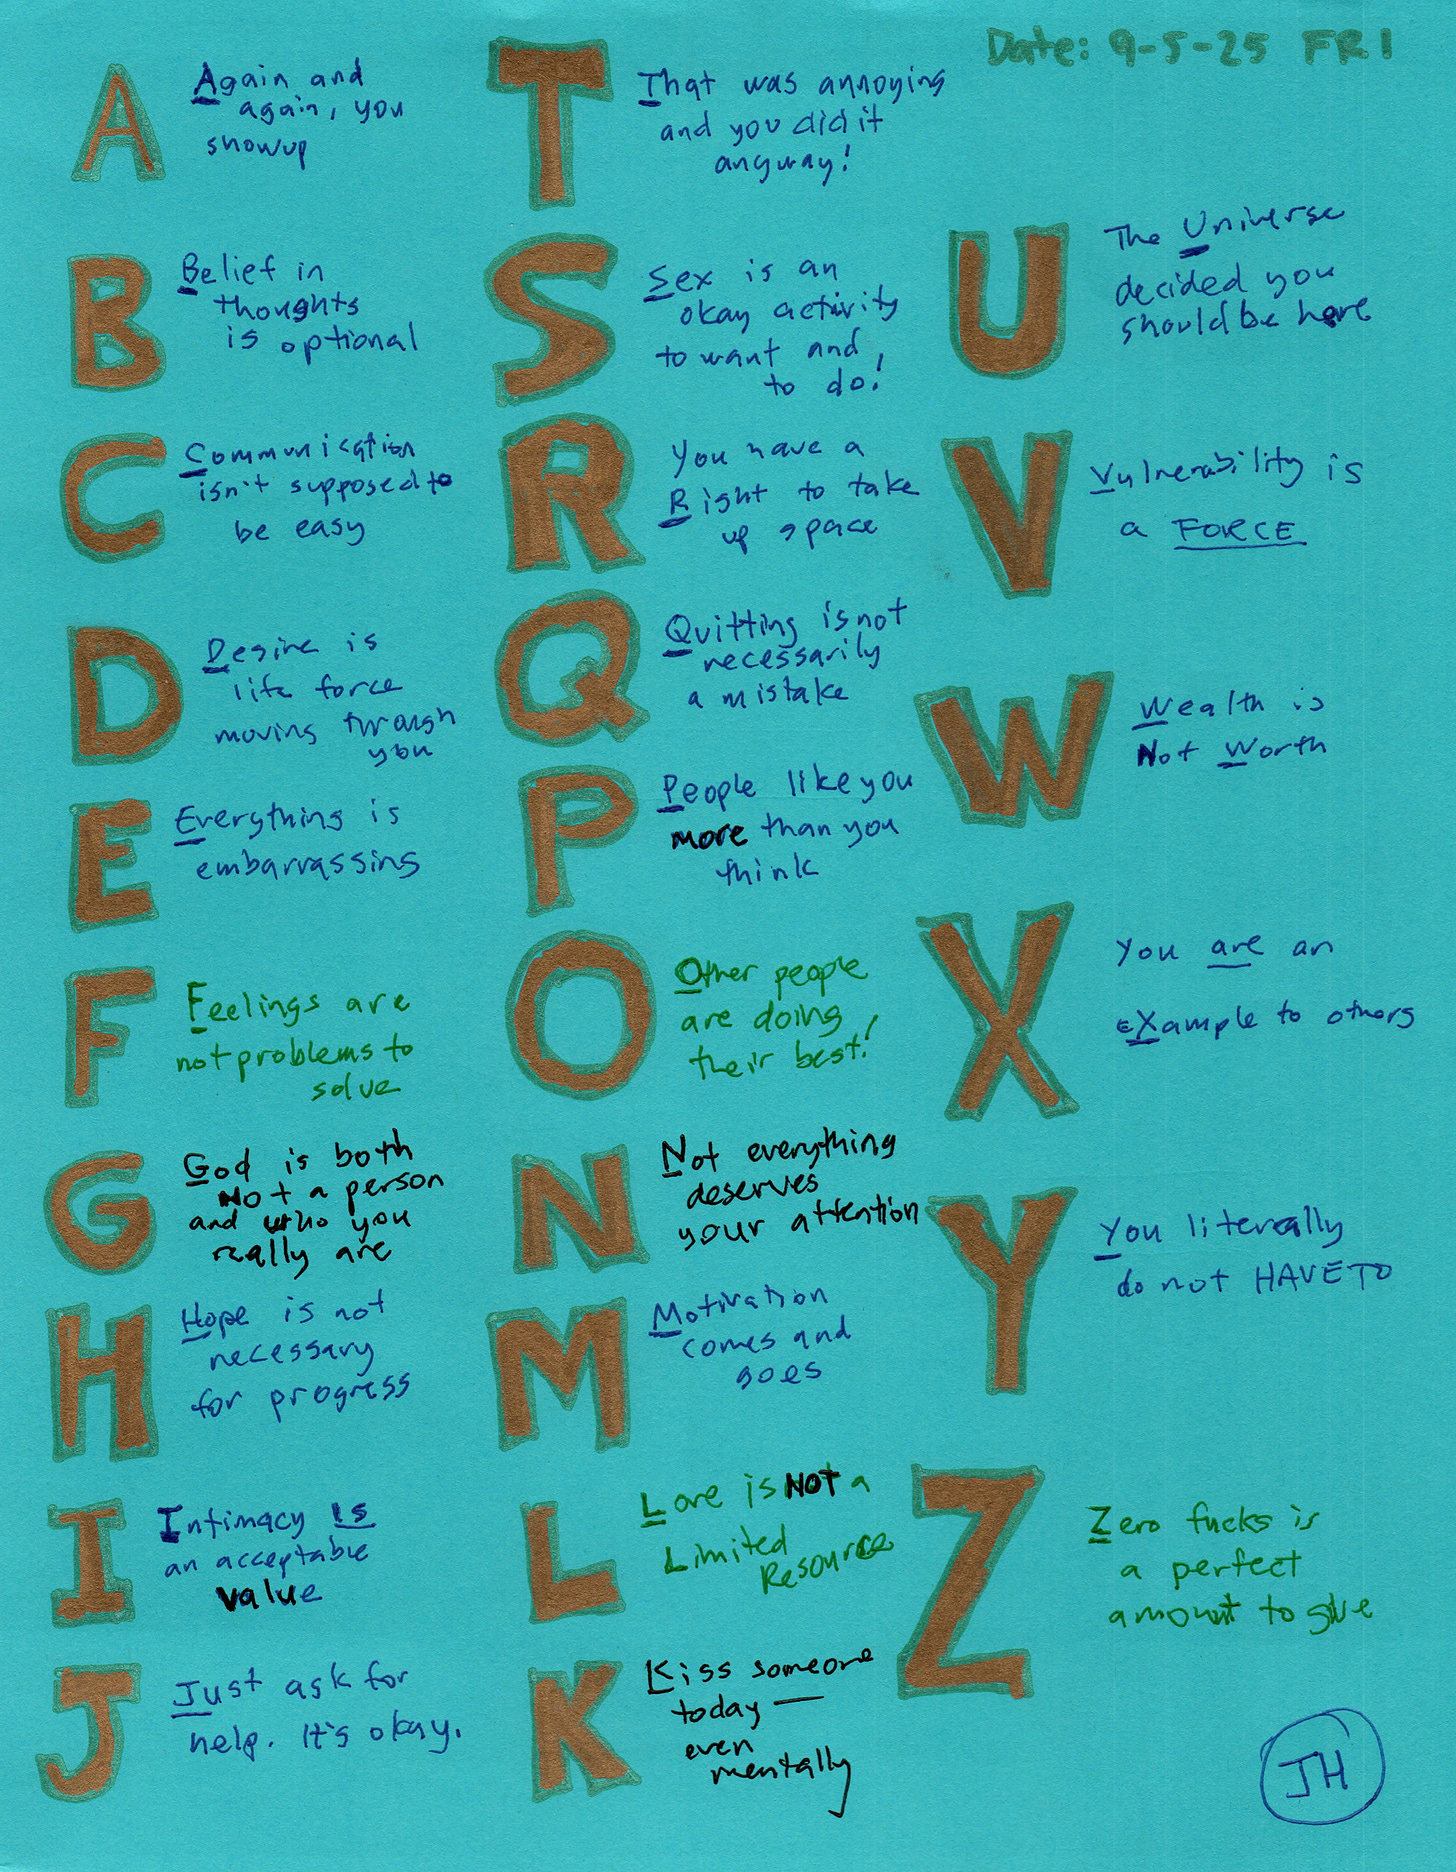 Date: 9-5-25 FRI
A
Again and
again, you
showup
B
Belief in
thoughts
is optional
C
Communication
isn't supposed to
be easy
D
Desire is
life force
moving through
you
E
Everything is
embarrassing
F
Feelings are
not problems to
solve
G
God is both
Not a person
and who you
really are
H
Hope is not
necessary
for progress
I
Intimacy IS
an acceptable
value
J
Just ask for
help. It's okay.
T
That was annoying
and you did it
anyway!
S
Sex is an
okay activity
to want and
to do!
R
You have a
Right to take
up space
Q
Quitting is not
necessarily
a mistake
P
People like you
more than you
think
O
Other people
are doing
their best!
N
Not everything
deserves
your attention
M
Motivation
comes and
goes
L
Love is NOT a
Limited
Resource
K
Kiss someone
today —
even
mentally
U
The Universe
decided you
should be here
V
Vulnerability is
a FORCE
W
Wealth is
Not Worth
X
You are an
eXample to others
Y
You literally
do not HAVE TO
Z
Zero fucks is
a perfect
amount to give
JH